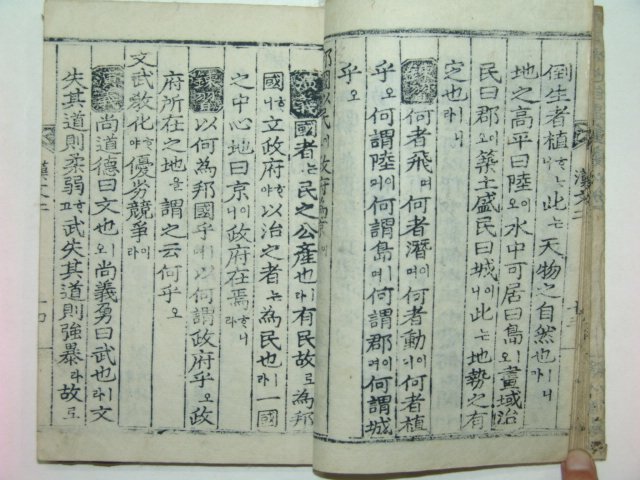 倒生者植이니此는天物之自然也ㅣ니
地之高平曰陸이오水中可居曰島오畫域治
民曰郡이오築土盛民曰城이니此는地勢之有
定也ㅣ라
練習 何者飛며何者潛이며何者動이며何者植
乎오何謂陸이며何謂島며何謂郡이며何謂城
乎오
國以民이政府
國者는民之公産也ㅣ라有民故로為邦
國ᄒᆞ니立政府ᄒᆞ야以治之者는為民也ㅣ라一國
之中心地曰京이니政府在焉ᄒᆞ니라
練習 以何為邦國乎며以何謂政府乎오政
府所在之地를謂之云何乎오
文武敎化ᄒᆞ야優劣競爭이라
演義 尚道德曰文也오尚義勇曰武也ㅣ라文
失其道則柔弱ᄒᆞ고武失其道則強暴라故로
漢文二
十四